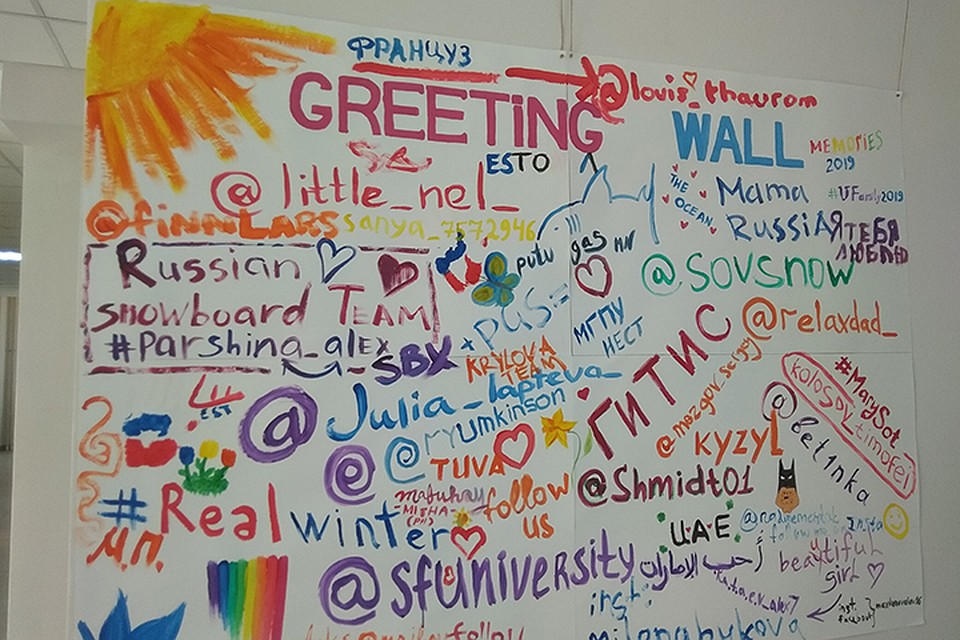 ФРАНЦУЗ
@louis_thaurom
GREETING WALL
MEMORIES
2019
ESTO
@little_nel_
THE
OCEAN
Mama
Russia
#UFamily2019
Я ТЕБЯ
ЛЮБЛЮ
@finnLARS
sanya_7572946
Russian
snowboard TEAM
#Parshina_alex
SBX
putu gas
@sovsnow
МГПУ
НЕСТ
ГИТИС
@relaxdad_
KRYLOVA
TEAM
@Julia_lapteva_
@ryumkinson
TUVA
#MarySot
kolosov_
timofei
@bet1nka
KYZYL
@Shmidt01
EST
#Real winter
М.П.
MISHA
follow
us
UAE
أحب الإمارات
Insta
beautiful
girl
@sfuniversity
inst:
milanabykova